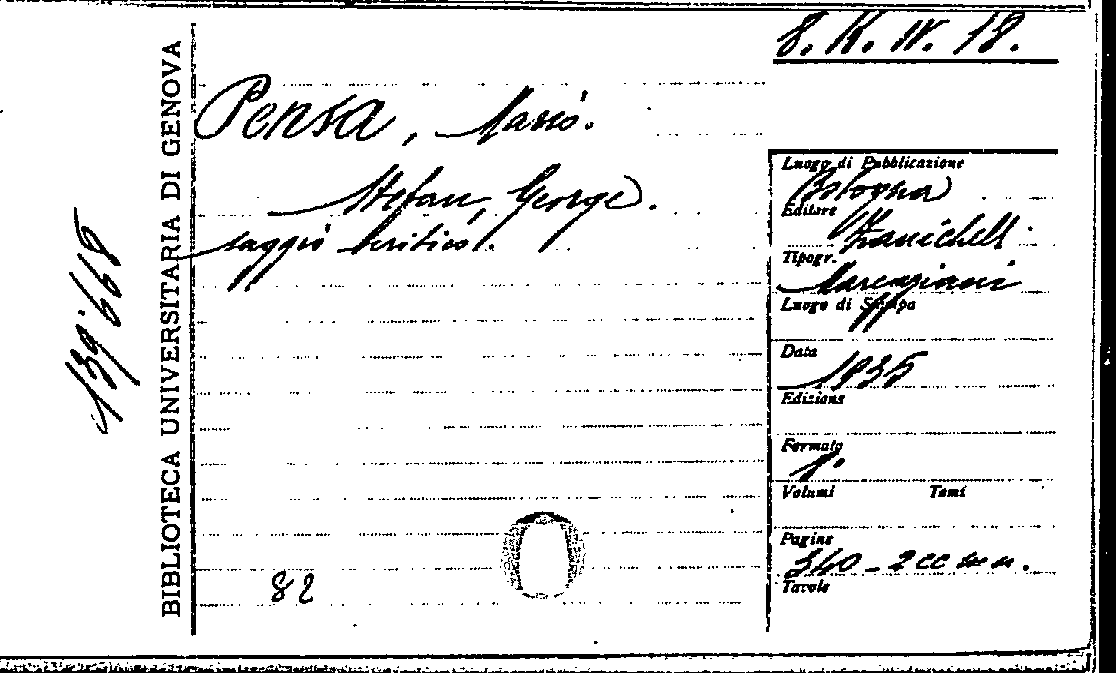 8. K. IV. 18.
BIBLIOTECA UNIVERSITARIA DI GENOVA
139668
Pensa, Mario.
Stefan, George.
saggio critico.
82
Luogo di Pubblicazione
Bologna
Editore
Zanichelli
Tipogr.
Mareggiani
Luogo di Stampa
Data
1935
Edizione
Formato
8°
Volumi Tomi
Pagine
340 - 2 cc n n.
Tavole